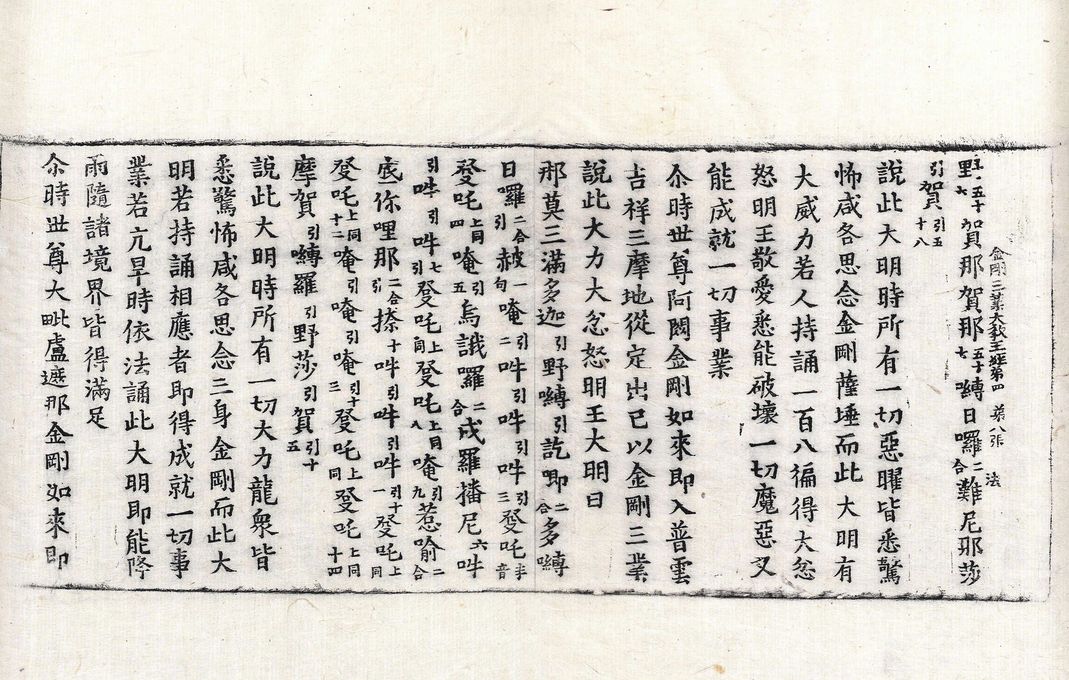 里七十五十賀那賀那五十七嚩日囉二合難尼耶莎
引賀引五十八
金剛三業大教王經第四　第八張　法
說此大明時所有一切惡曜皆悉驚
怖咸各思念金剛薩埵而此大明有
大威力若人持誦一百八徧得大忿
怒明王敬愛悉能破壞一切魔惡又
能成就一切事業
尒時世尊阿閦金剛如來即入普雲
吉祥三摩地從定出已以金剛三業
說此大力大忿怒明王大明曰
那莫三滿多迦引野嚩引訖即二合多嚩
日囉二合引赧句一唵二吽引吽引吽三癹吒半音
癹吒上同四唵引五烏誐囉二合戍羅播尼六吽
引吽引吽引七癹吒上同癹吒上同八唵引九惹喻二合
底你哩那二合引捺十吽引吽引吽引十一癹吒上同
癹吒上同十二唵引唵引唵引十三癹吒上同癹吒上同十四
摩賀引嚩羅引野莎引賀引十五
說此大明時所有一切大力龍衆皆
悉驚怖咸各思念三身金剛而此大
明若持誦相應者即得成就一切事
業若亢旱時依法誦此大明即能降
雨隨諸境界皆得滿足
尒時世尊大毗盧遮那金剛如來即